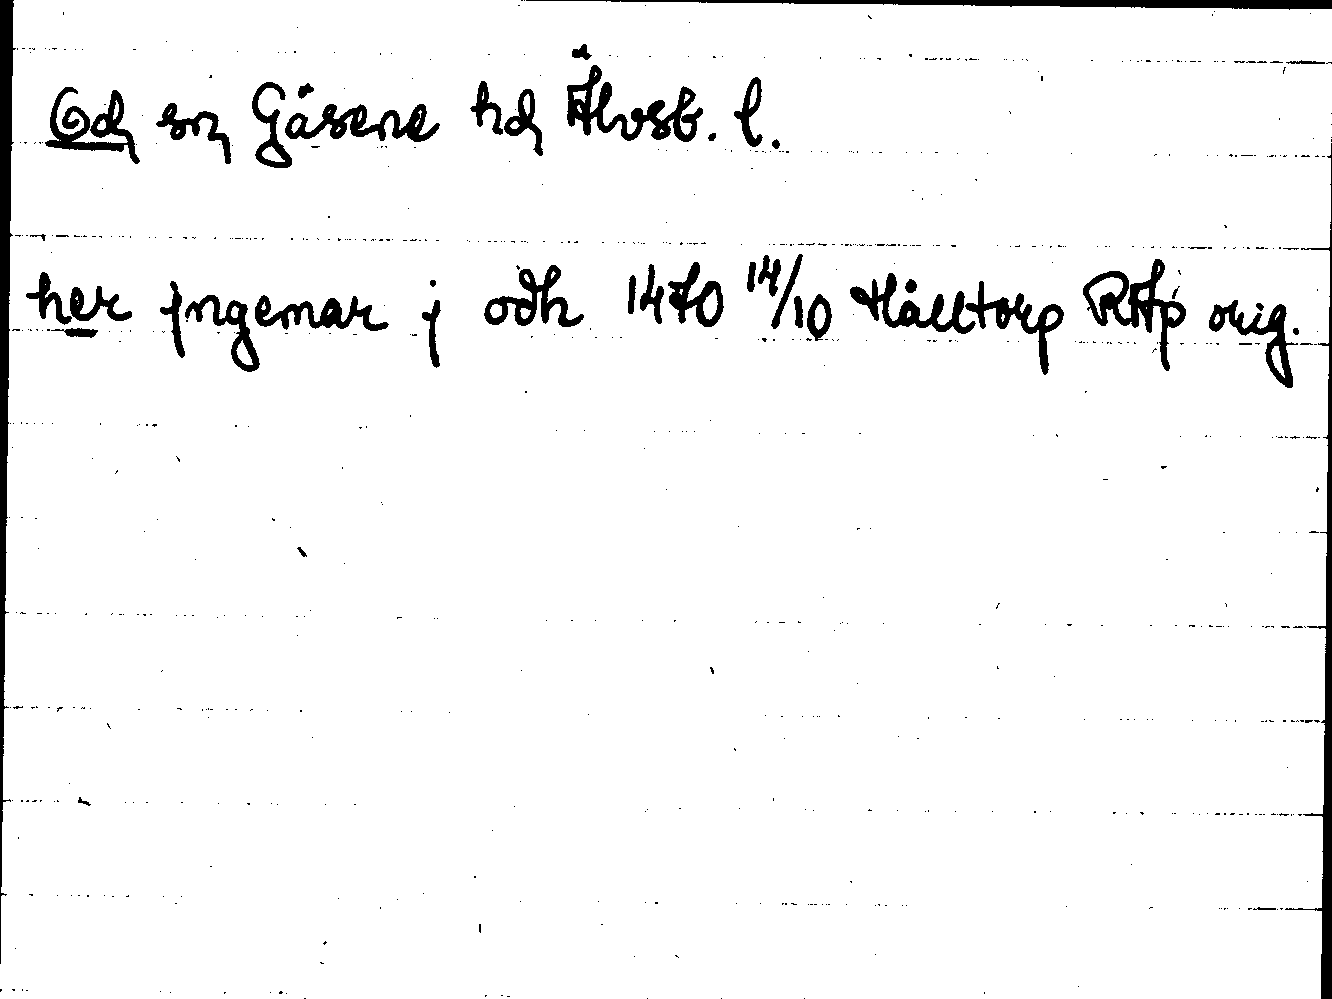 Od sn Gäsene hd Älvsb. l.
her jngemar j odh 1470 14/10 Hålltorp RAp orig.